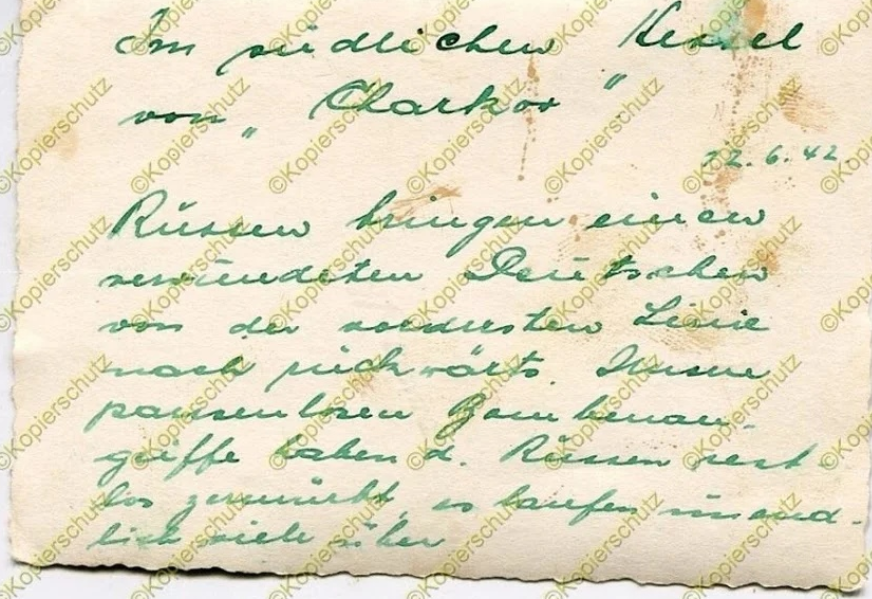 Im südlichen Kessel
von „Charkov"
12.6.42.
Russen bringen einen
verwundeten Deutschen
von der vordersten Linie
nach rückwärts. Unsere
pausenlosen Bombenan-
griffe haben d. Russen rest-
los zermürbt, es laufen unend-
lich viele über
©Kopierschutz